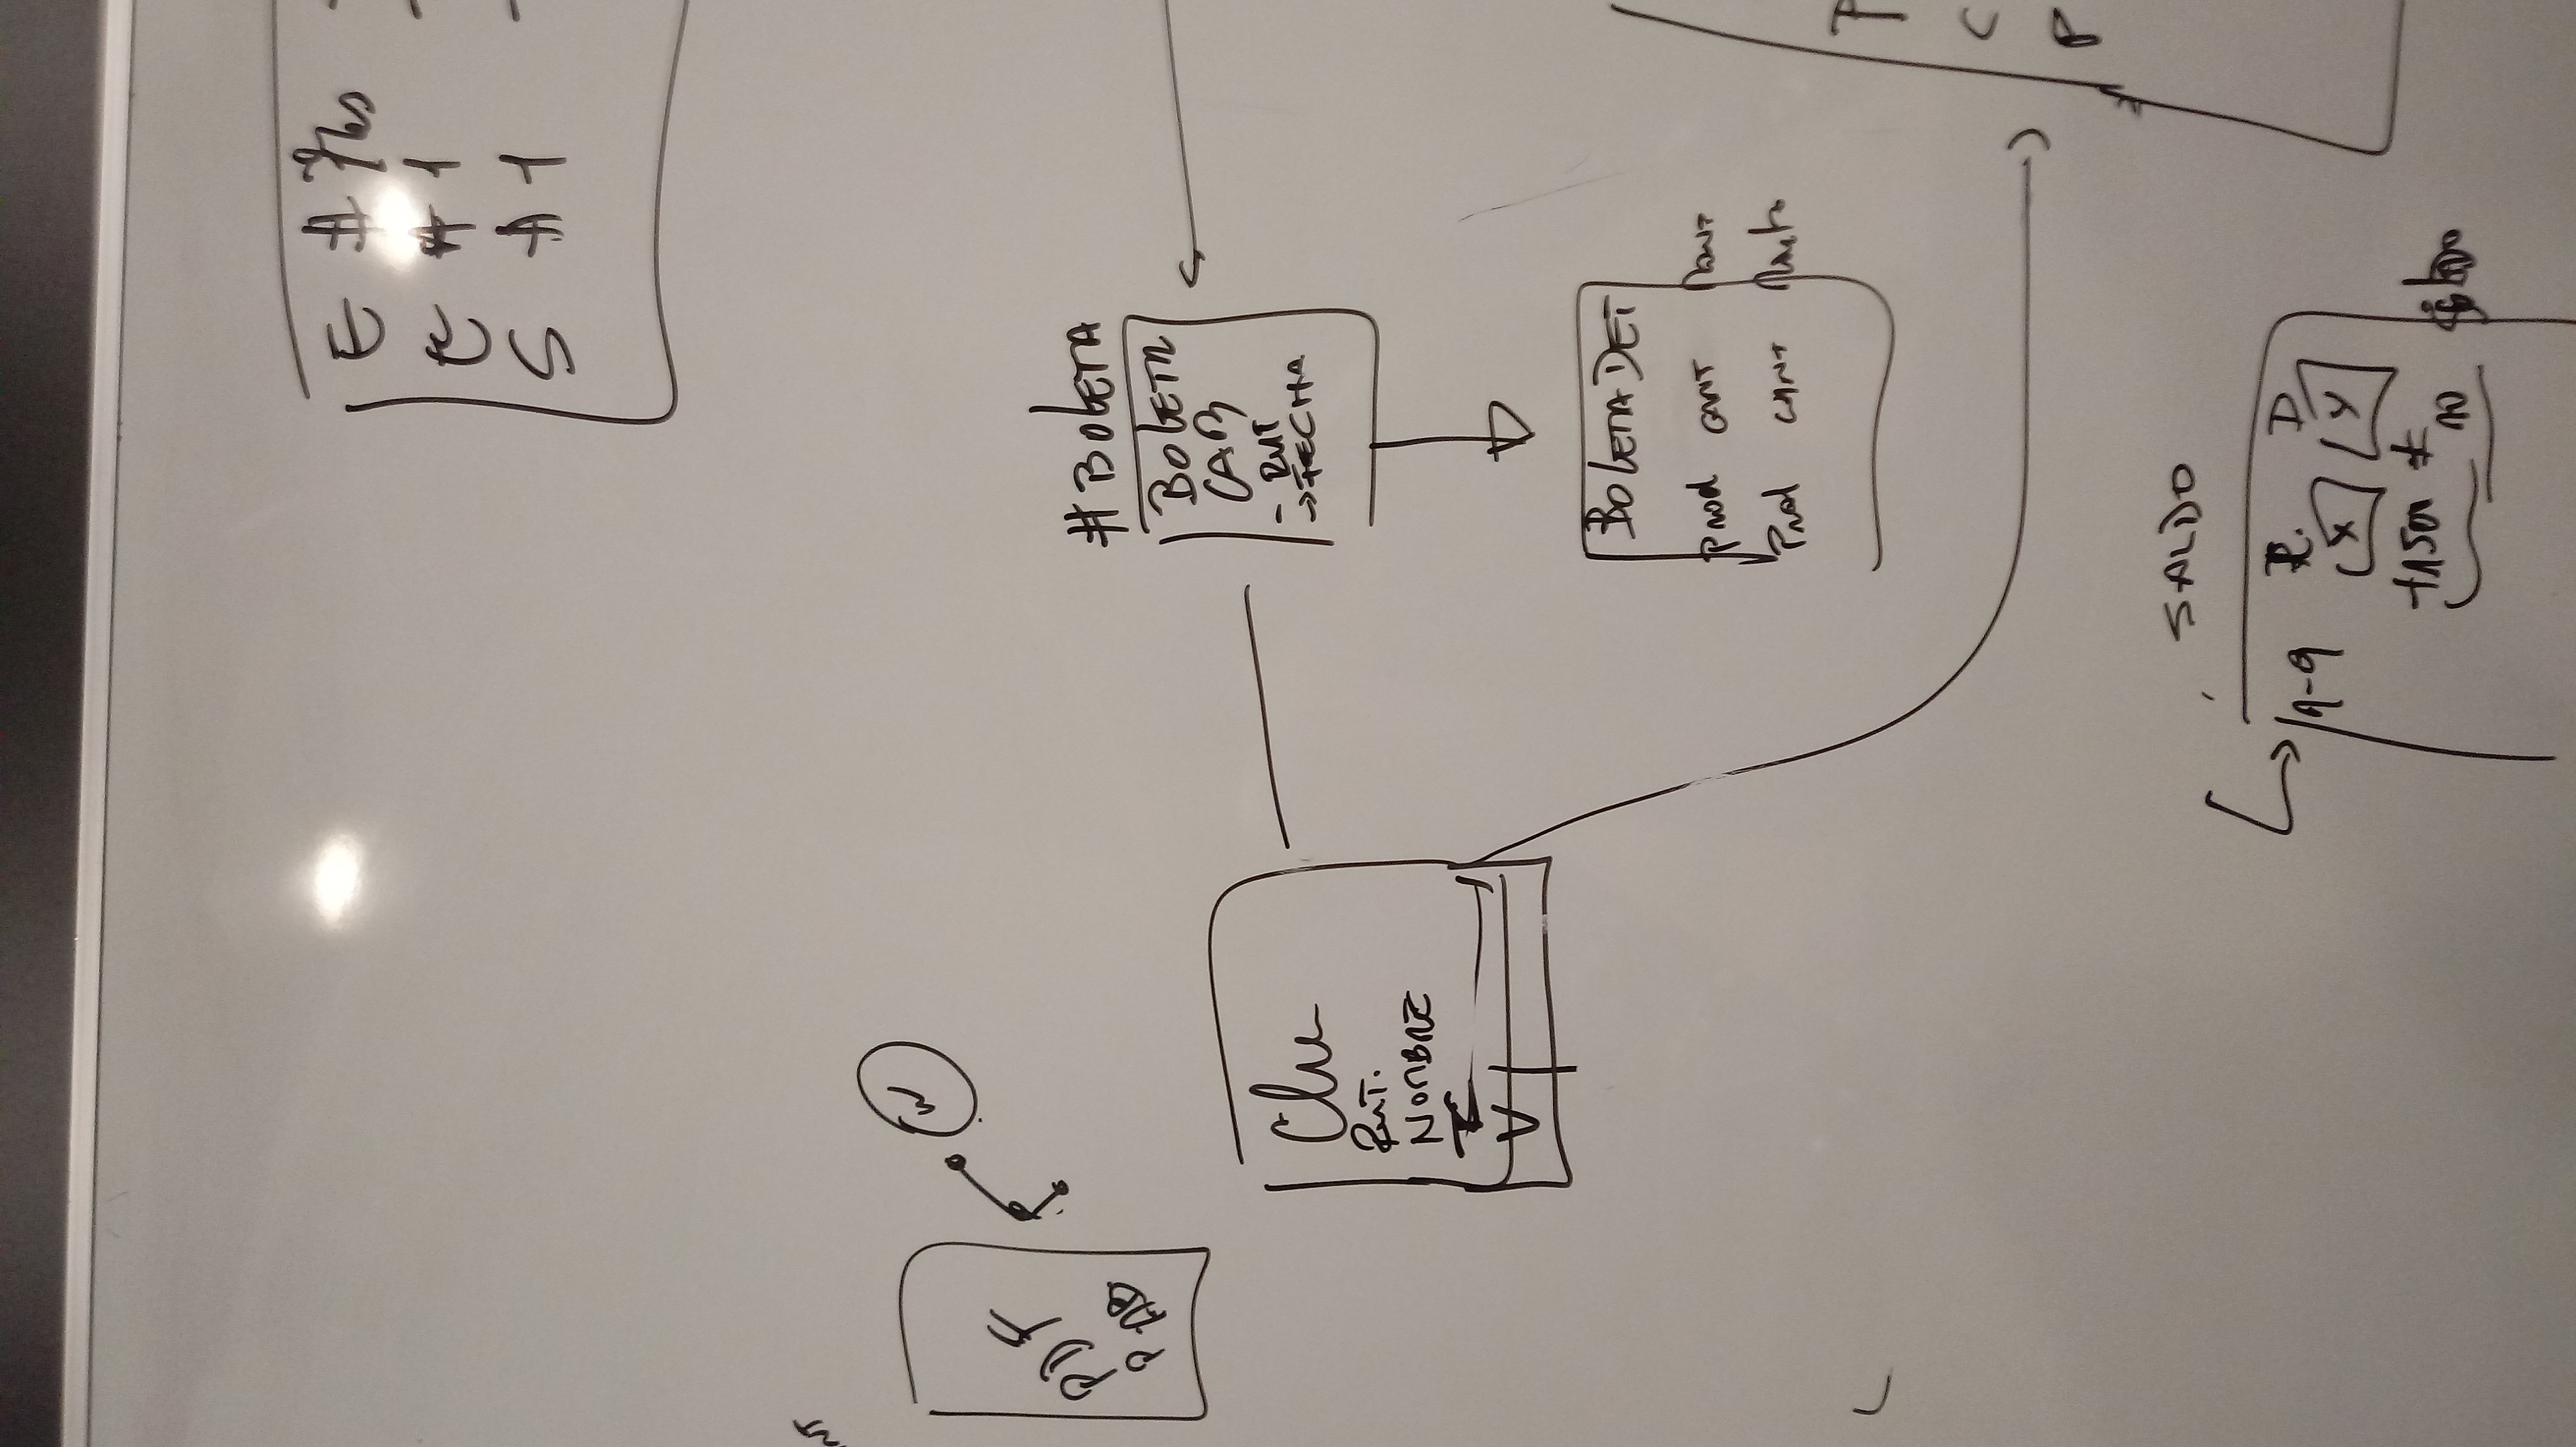 E #
E # 1
S # 1
W
PDF
PAB
# BOLETA
BOLETA
CAB
- RUT
→ FECHA
RUT.
NOMBRE
V
BOLETA DET
Prod CANT Mont
Prod CANT Monto
T
C
P
SALDO
1-9 R. D
X Y
+1500 ±
10 SALDO